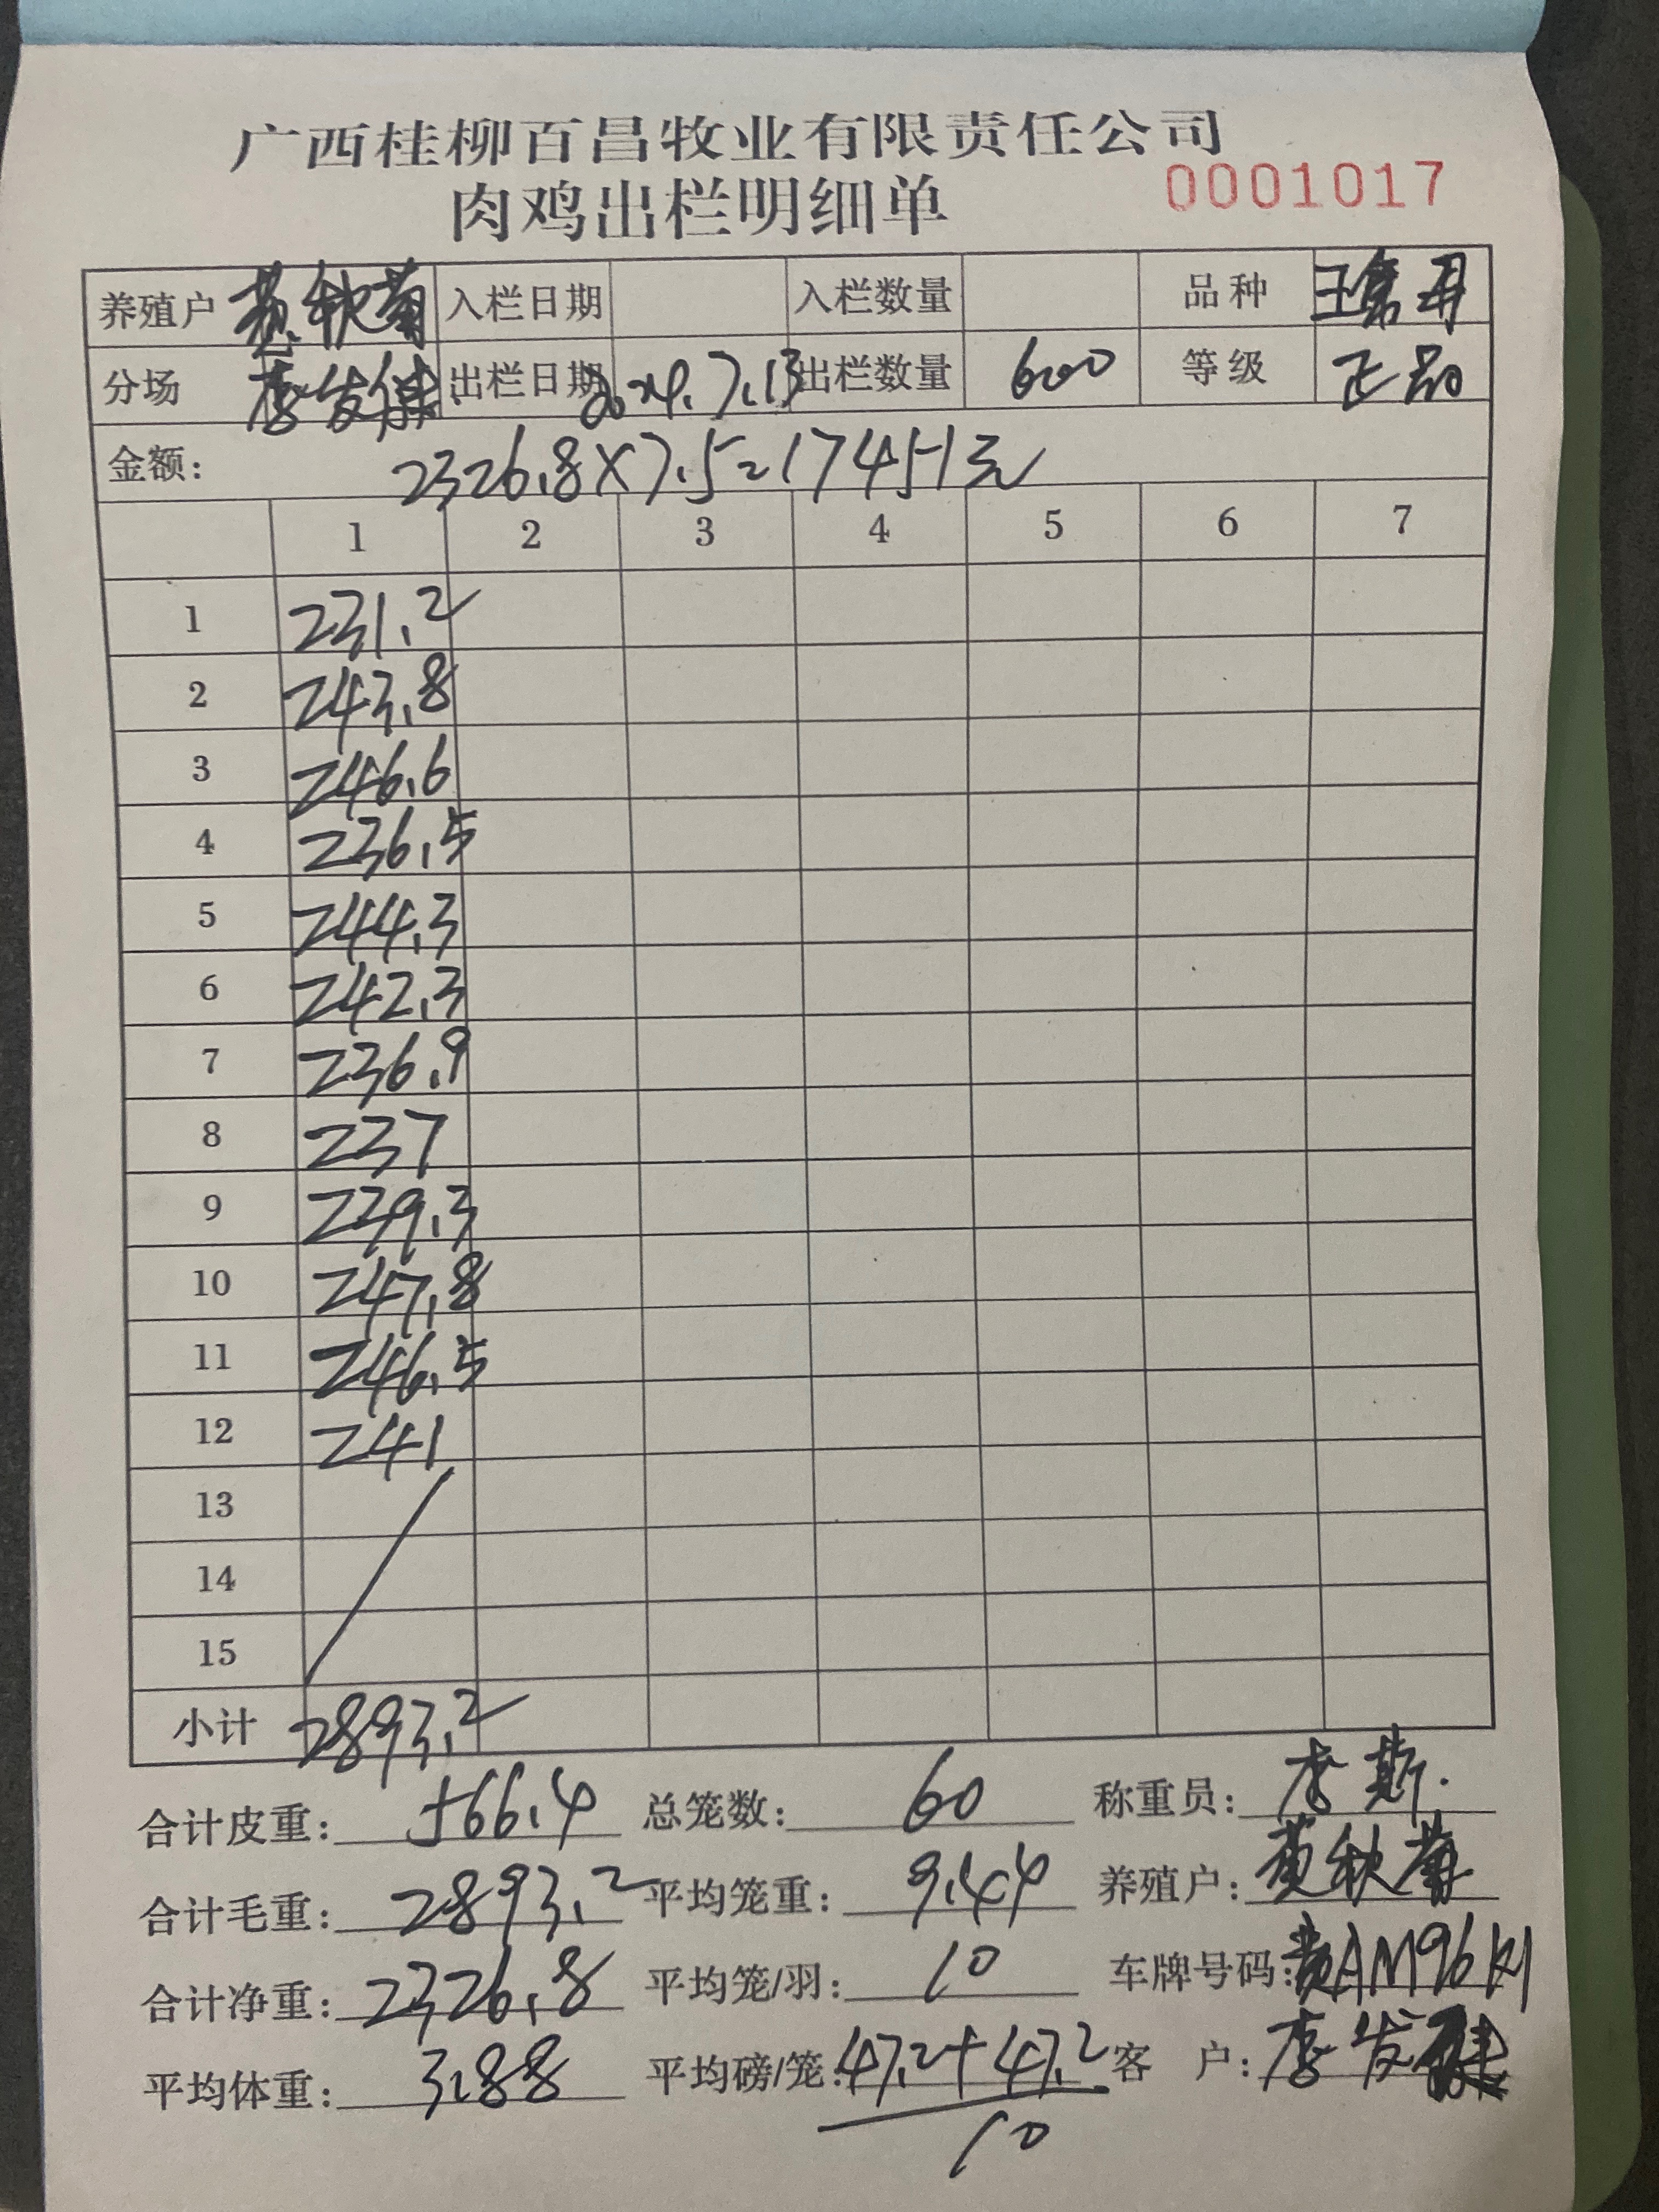 广西桂柳百昌牧业有限责任公司
肉鸡出栏明细单 0001017
养殖户 黄秋菊 入栏日期 入栏数量 品种
分场 李发 出栏日期 2024.7.13 出栏数量 600 等级 正品
金额: 2326.8×7.5=17451元
1 2 3 4 5 6 7
1 231.2
2 243.8
3 246.6
4 236.5
5 244.3
6 242.3
7 236.9
8 237
9 239.3
10 247.8
11 246.5
12 241
13
14
15
小计 2893.2
合计皮重: 566.4 总笼数: 60 称重员: 李斯
合计毛重: 2893.2 平均笼重: 9.44 养殖户: 黄秋菊
合计净重: 2326.8 平均笼/羽: 10 车牌号码: 贵AM96
平均体重: 3.88 平均磅/笼: 47.2+47.2 客户: 李发
10